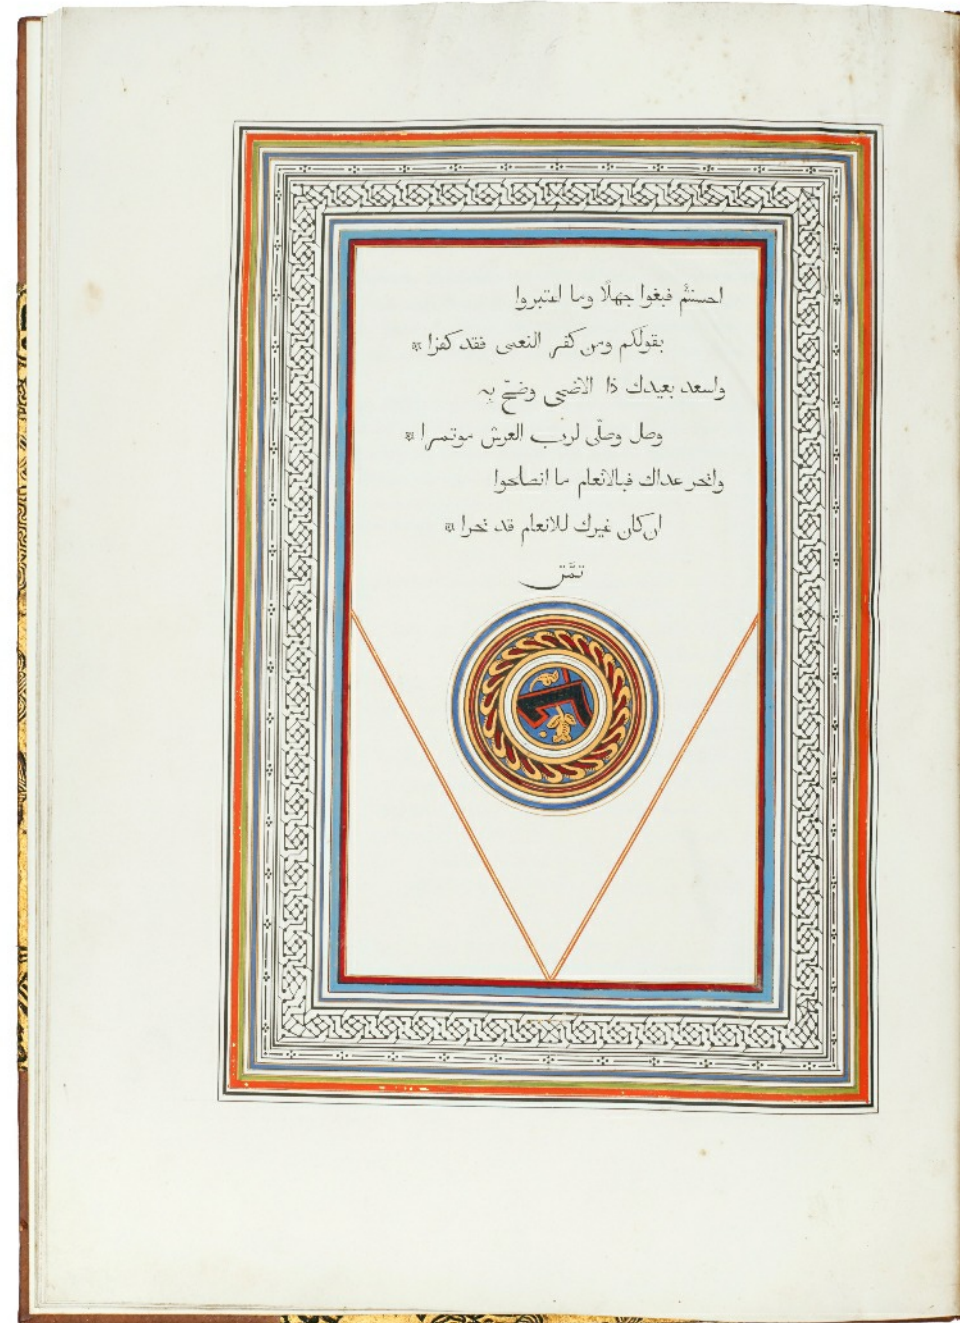 احسنتُم فبغوا جهلًا وما اعتبروا
بقولكم ومن كفر النعمى فقد كفرا *
واسعد بعيدك ذا الاضحى وضحّ به
وصل وصلّى لرب العرش موتمرا *
وانحر عداك فبالانعام ما انصلحوا
ان كان غيرك للانعام قد نحرا *
تمّت